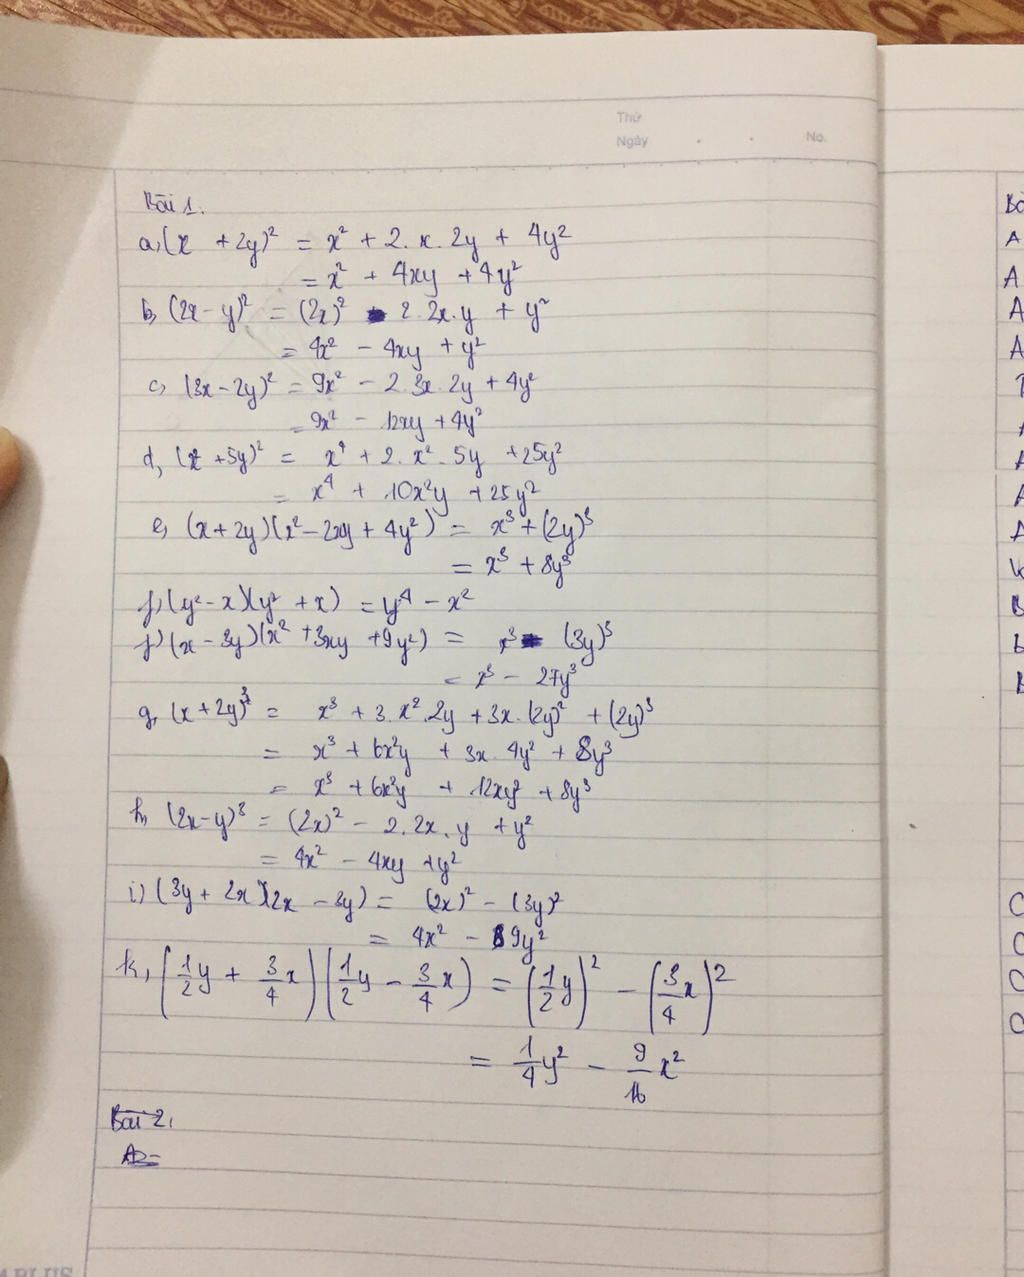 Thứ
Ngày . . No.
Bài 1.
a, (x + 2y)² = x² + 2. x. 2y + 4y²
= x² + 4xy + 4y²
b, (2x - y)² = (2x)² - 2. 2x. y + y²
= 4x² - 4xy + y²
c, (3x - 2y)² = 9x² - 2. 3x. 2y + 4y²
= 9x² - 12xy + 4y²
d, (x² + 5y)² = x⁴ + 2. x². 5y + 25y²
= x⁴ + 10x²y + 25y²
e, (x + 2y)(x² - 2xy + 4y²) = x³ + (2y)³
= x³ + 8y³
f, (y² - x)(y² + x) = y⁴ - x²
f') (x - 3y)(x² + 3xy + 9y²) = x³ - (3y)³
= x³ - 27y³
g, (x + 2y)³ = x³ + 3. x². 2y + 3x. (2y)² + (2y)³
= x³ + 6x²y + 3x. 4y² + 8y³
= x³ + 6x²y + 12xy² + 8y³
h, (2x - y)³ = (2x)² - 2. 2x. y + y²
= 4x² - 4xy + y²
i) (3y + 2x)(2x - 3y) = (2x)² - (3y)²
= 4x² - 9y²
k, (1/2 y + 3/4 x)(1/2 y - 3/4 x) = (1/2 y)² - (3/4 x)²
= 1/4 y² - 9/16 x²
Bài 2.